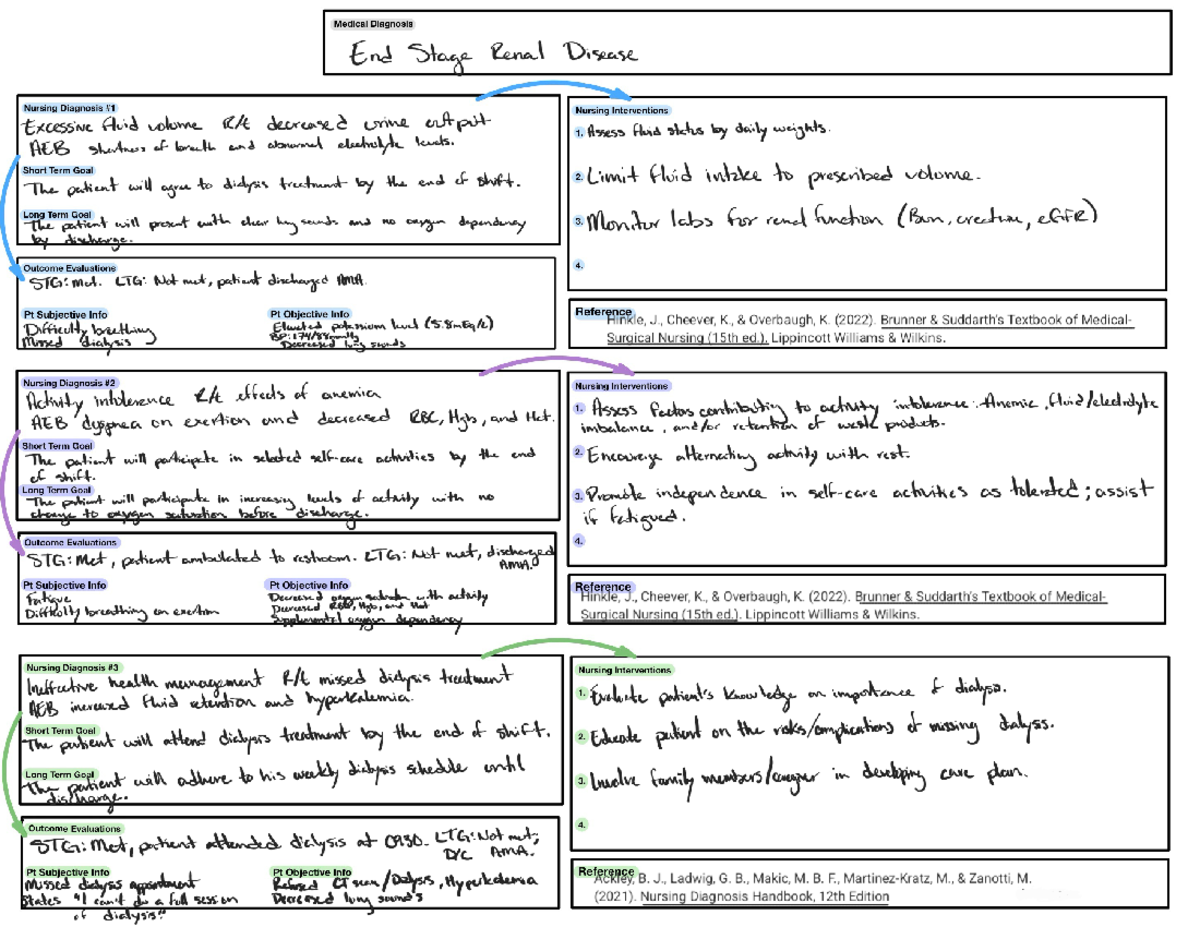 Medical Diagnosis
End Stage Renal Disease
Nursing Diagnosis #1
Excessive fluid volume R/t decreased urine output
AEB shortness of breath and abnormal electrolyte levels.
Short Term Goal
The patient will agree to dialysis treatment by the end of shift.
Long Term Goal
The patient will present with clear lung sounds and no oxygen dependency
by discharge.
Nursing Interventions
1. Assess fluid status by daily weights.
2. Limit fluid intake to prescribed volume.
3. Monitor labs for renal function (Bun, creatine, eGFR)
4.
Outcome Evaluations
STG: Met. LTG: Not met, patient discharged AMA.
Pt Subjective Info
Difficulty breathing
Missed dialysis
Pt Objective Info
Elevated potassium level (5.8mEq/L)
BP: 174/88mmHg
Decreased lung sounds
Reference
Hinkle, J., Cheever, K., & Overbaugh, K. (2022). Brunner & Suddarth's Textbook of Medical-
Surgical Nursing (15th ed.). Lippincott Williams & Wilkins.
Nursing Diagnosis #2
Activity intolerence R/t effects of anemia
AEB dyspnea on exertion and decreased RBC, Hgb, and Hct.
Short Term Goal
The patient will participate in selected self-care activities by the end
of shift.
Long Term Goal
The patient will participate in increasing levels of activity with no
change to oxygen saturation before discharge.
Nursing Interventions
1. Assess factors contributing to activity intolerence: Anemic, fluid/electrolyte
imbalance, and/or retention of waste products.
2. Encourage alternating activity with rest.
3. Promote independence in self-care activities as tolerated; assist
if fatigued.
4.
Outcome Evaluations
STG: Met, patient ambulated to restroom. LTG: Not met, discharged
AMA.
Pt Subjective Info
Fatigue
Difficulty breathing on exertion
Pt Objective Info
Decreased oxygen saturation with activity
Decreased RBC, Hgb, and Hct
Supplemental oxygen dependency
Reference
Hinkle, J., Cheever, K., & Overbaugh, K. (2022). Brunner & Suddarth's Textbook of Medical-
Surgical Nursing (15th ed.). Lippincott Williams & Wilkins.
Nursing Diagnosis #3
Ineffective health management R/t missed dialysis treatment
AEB increased fluid retention and hyperkalemia.
Short Term Goal
The patient will attend dialysis treatment by the end of shift.
Long Term Goal
The patient will adhere to his weekly dialysis schedule until
discharge.
Nursing Interventions
1. Evaluate patient's knowledge on importance of dialysis.
2. Educate patient on the risks/complications of missing dialysis.
3. Involve family members/caregiver in developing care plan.
4.
Outcome Evaluations
STG: Met, patient attended dialysis at 0930. LTG: Not met;
D/C AMA.
Pt Subjective Info
Missed dialysis appointment
States "I can't do a full session
of dialysis"
Pt Objective Info
Refused CT scan/Dialysis, Hyperkalemia
Decreased lung sound's
Reference
Ackley, B. J., Ladwig, G. B., Makic, M. B. F., Martinez-Kratz, M., & Zanotti, M.
(2021). Nursing Diagnosis Handbook, 12th Edition